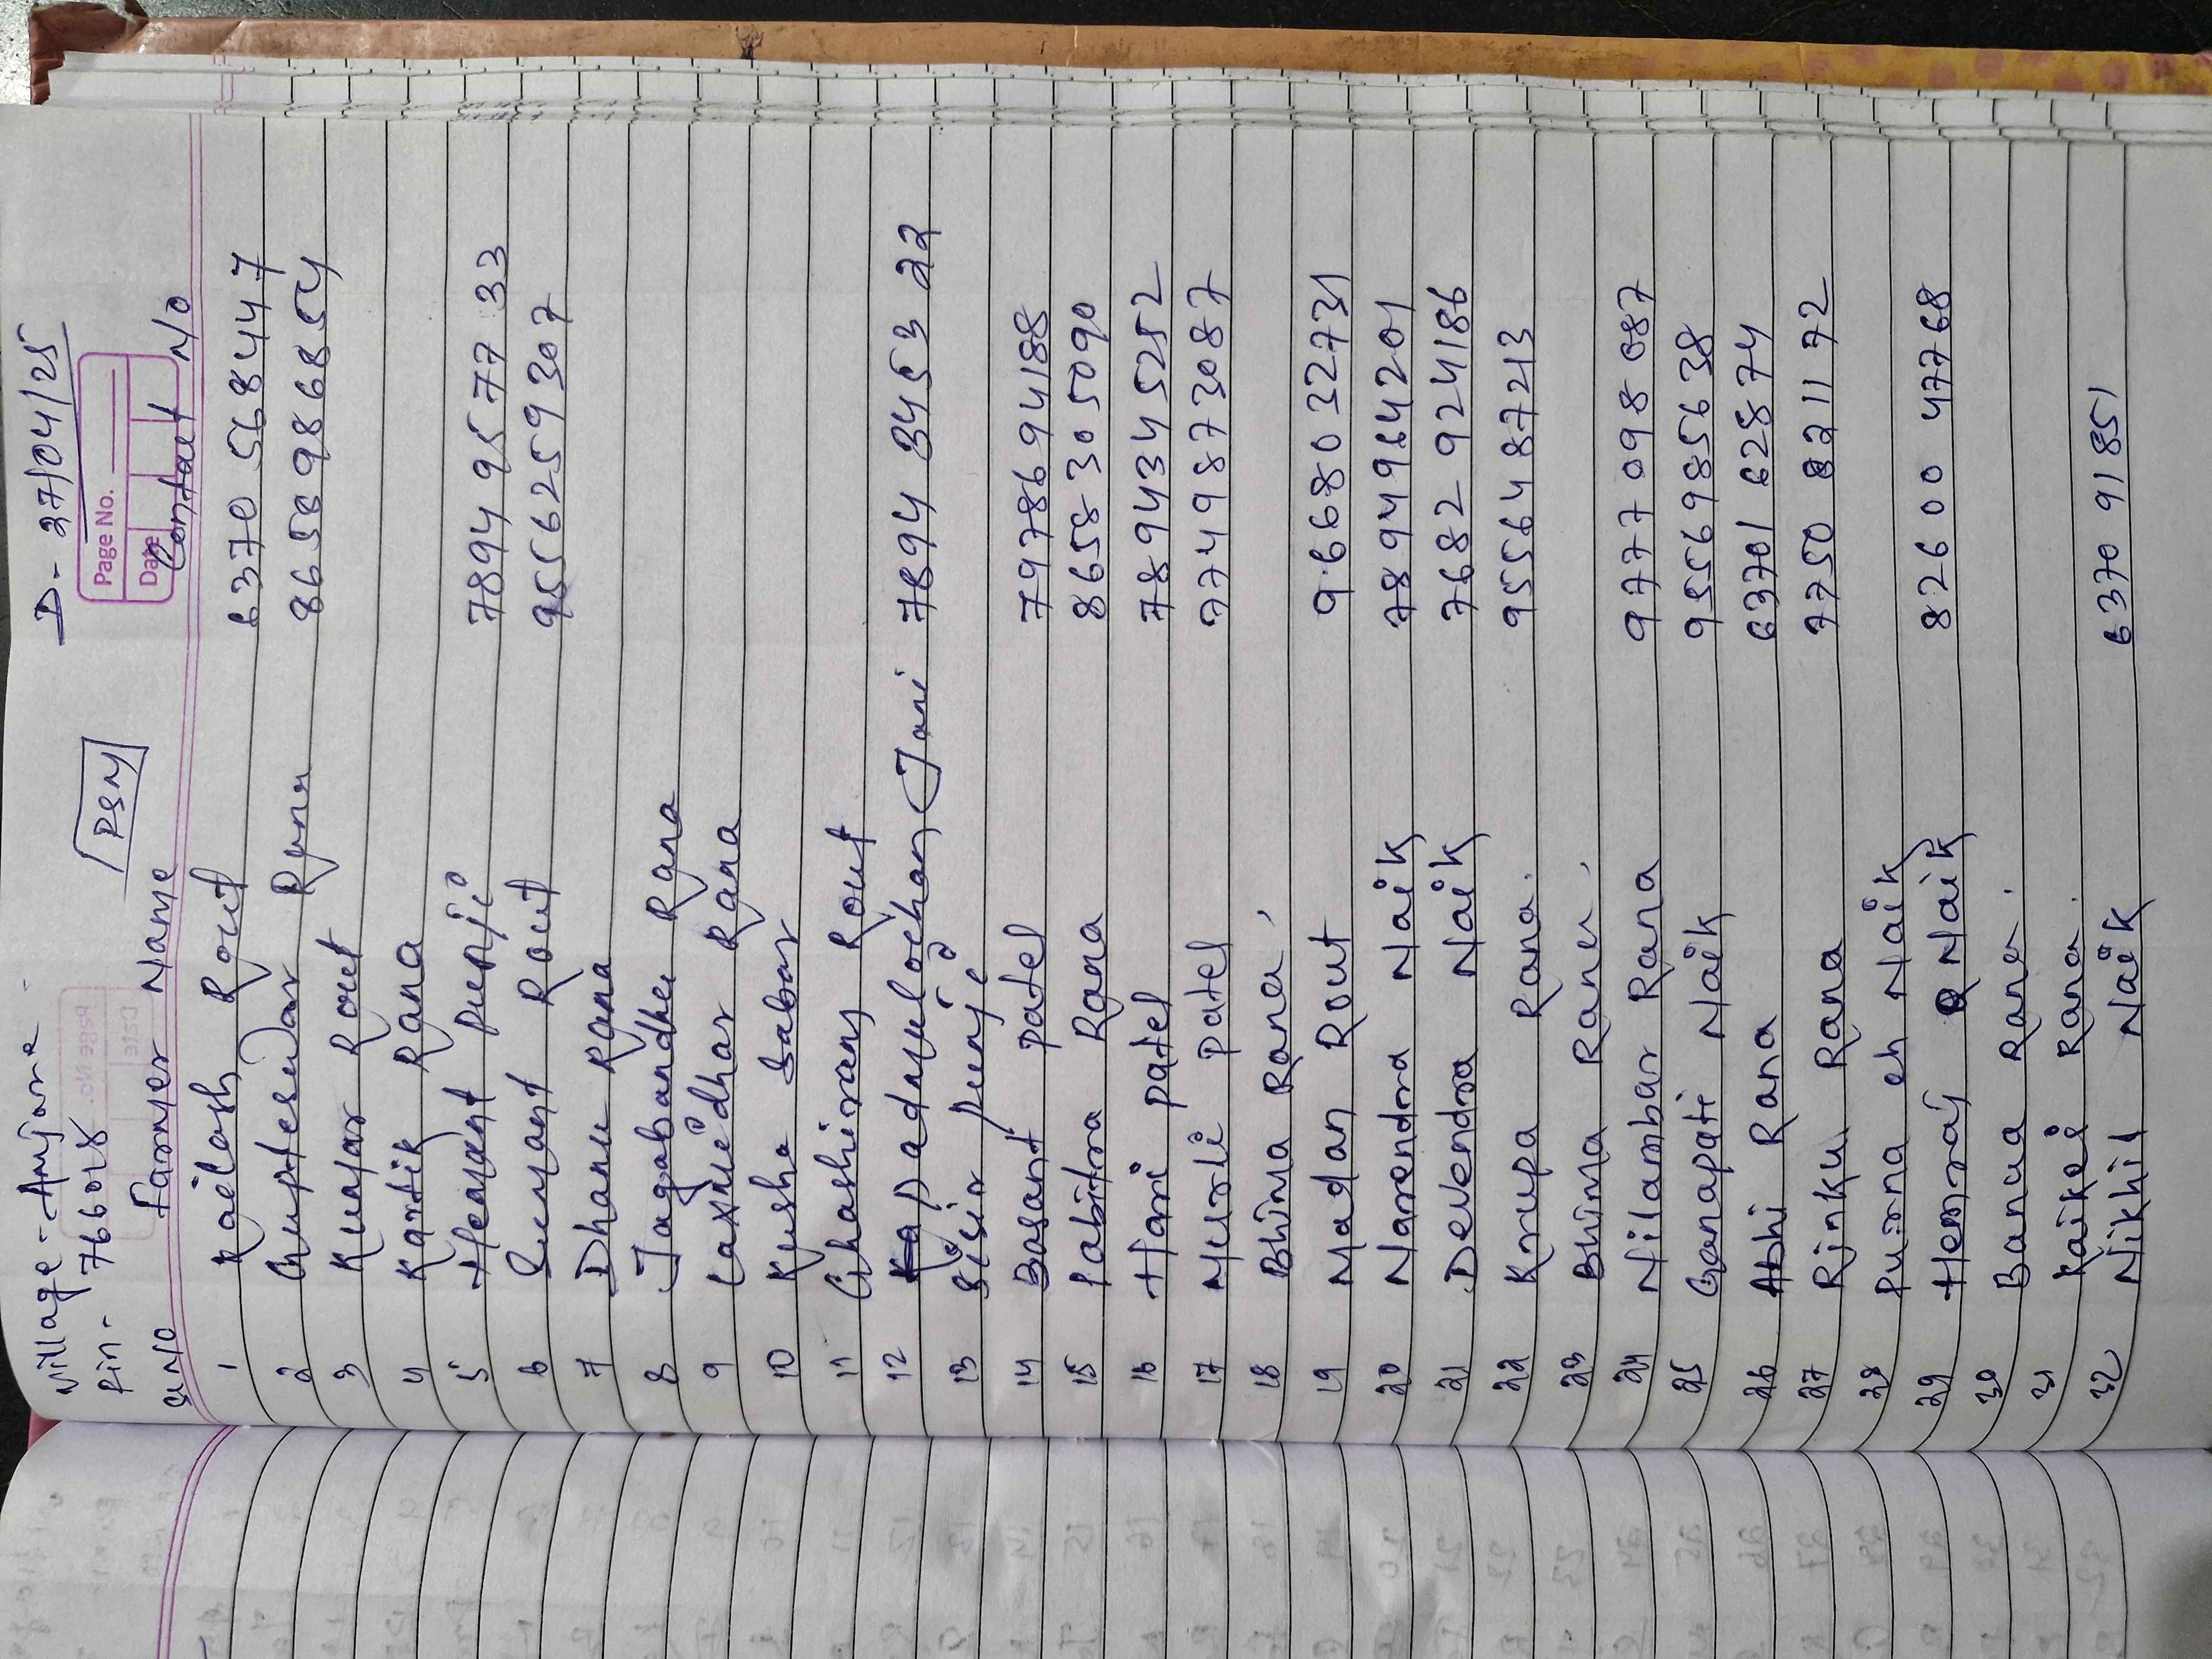 Village - Amjore - D - 27/04/25
Pin - 766018 PSM
Page No.
Date
Sl No Farmer Name Contact No
1 Kailash Rout 6370 568447
2 Gupteswar Rana 8658986854
3 Kumar Rout
4 Kartik Rana
5 Hemant punji 7894 95 77 33
6 Sumant Rout 9556259307
7 Dhanu Rana
8 Jagabandhu Rana
9 Laxmidhar Rana
10 Kusha Sabar
11 Ghashiram Rout
12 Padmulochan Jani 7894 3453 22
13 Sisir punji
14 Basant patel 7978694188
15 Pabitra Rana 8658305090
16 Hari patel 7894345252
17 Murli patel 7749873087
18 Bhima Rana
19 Madan Rout 9668032731
20 Narendra Naik 7894964201
21 Devendra Naik 7682924186
22 Krupa Rana. 9556487213
23 Bhima Rana
24 Nilambar Rana 9777098087
25 Ganapati Naik 9556985638
26 Abhi Rana 63701 628 74
27 Rinku Rana 7750 821172
28 Purna ch Naik
29 Hemraj Naik 82600 47768
30 Banua Rana.
31 Kaikei Rana.
32 Nikhil Naik 6370 91851